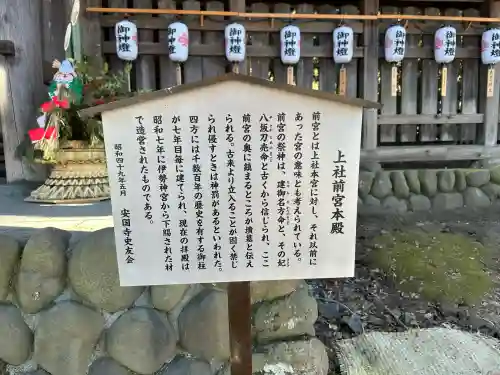 上社前宮本殿
前宮とは上社本宮に対し、それ以前に
あった宮の意味とも考えられている。
前宮の祭神は、建御名方命と、その妃
八坂刀売命と古くから信じられ、ここ
前宮の奥に鎮まるところが墳墓と伝え
られる。古来より立入ることが固く禁じ
られ侵すと神罰があるといわれた。
四方には千数百年の歴史を有する御柱
が七年目毎に建てられ、現在の拝殿は
昭和七年に伊勢神宮から下賜された材
で造営されたものである。
昭和四十九年五月
安国寺史友会
御神燈
御神燈
御神燈
御神燈
御神燈
御神燈
御神燈
御神燈